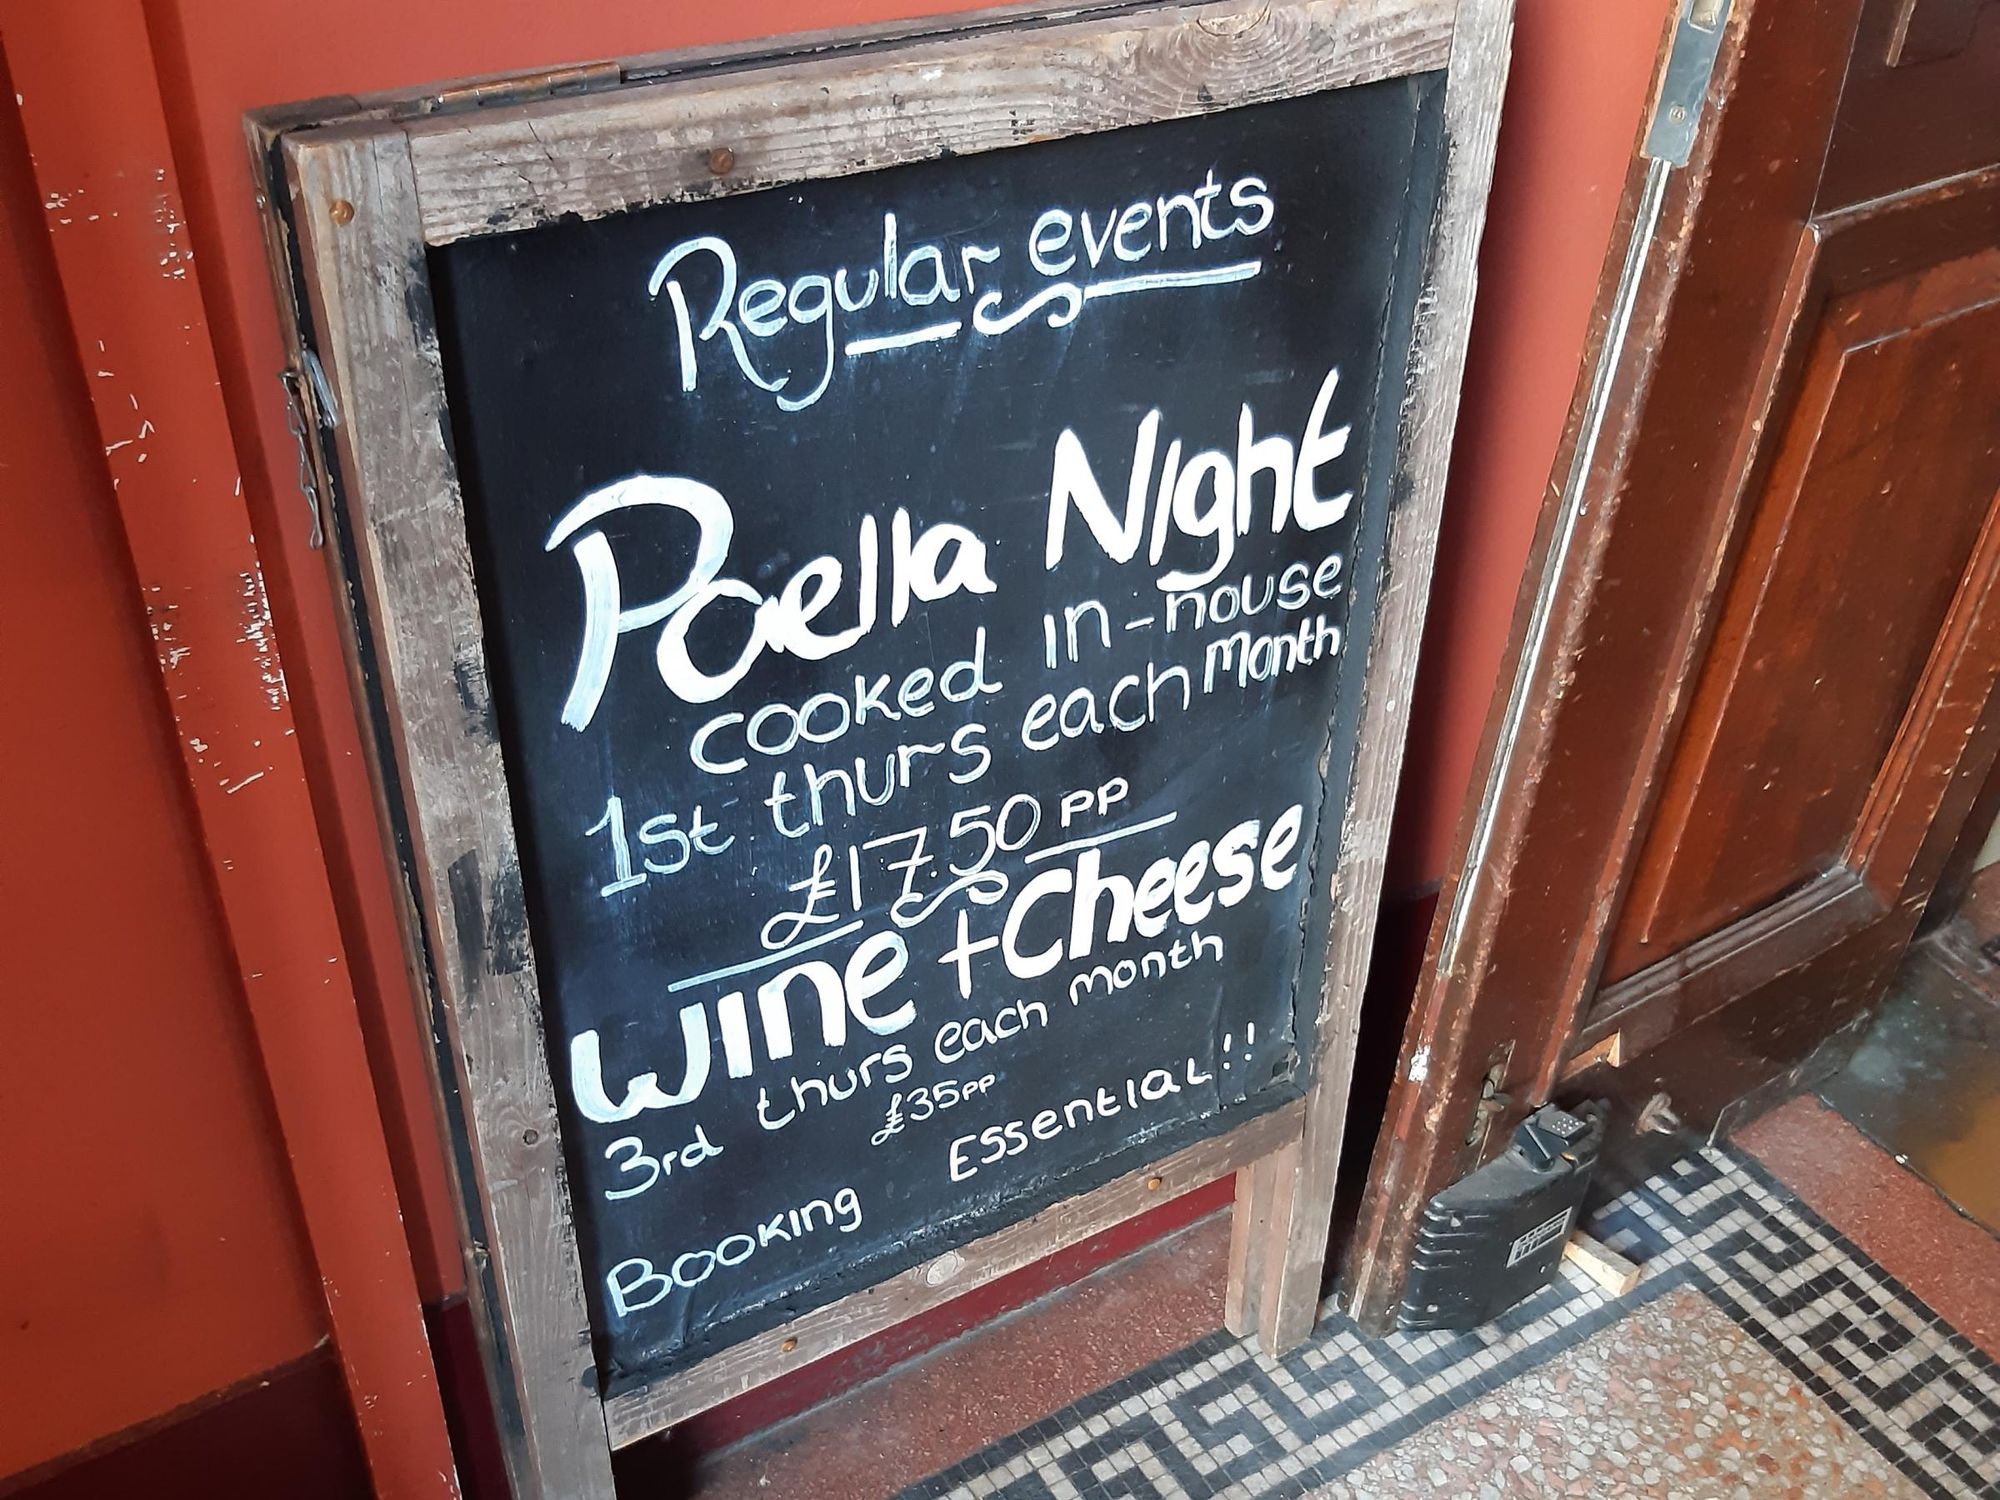 Regular events
Paella Night
cooked in-house
1st thurs each Month
£17.50 PP
wine + Cheese
3rd thurs each month
£35PP
Booking Essential!!